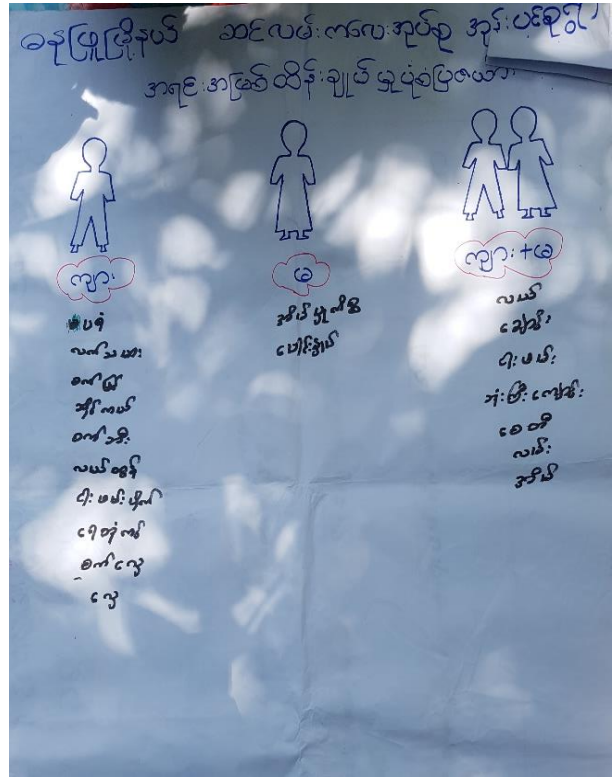 ဓနုဖြူမြို့နယ် ဆင်လမ်းကလေးအုပ်စု အုန်းပင်စုရွာ
အရင်းအမြစ်ထိန်းချုပ်မှုပုံစံပြဇယား
ကျား
မ
ကျား+မ
ယပရံ
လက်သမား
စက်ပြင်
ဆိုင်ကယ်
စက်ဘီး
လယ်ထွန်
ငါးဖမ်းပိုက်
ရေတုံကင်
စက်လှေ
လှေ
အိမ်မှုကိစ္စ
ပေါင်းနှုတ်
လယ်
ချောင်း
ငါးဖမ်း
ဘုံးကြီးကျောင်း
စေတီ
လမ်း
အိမ်